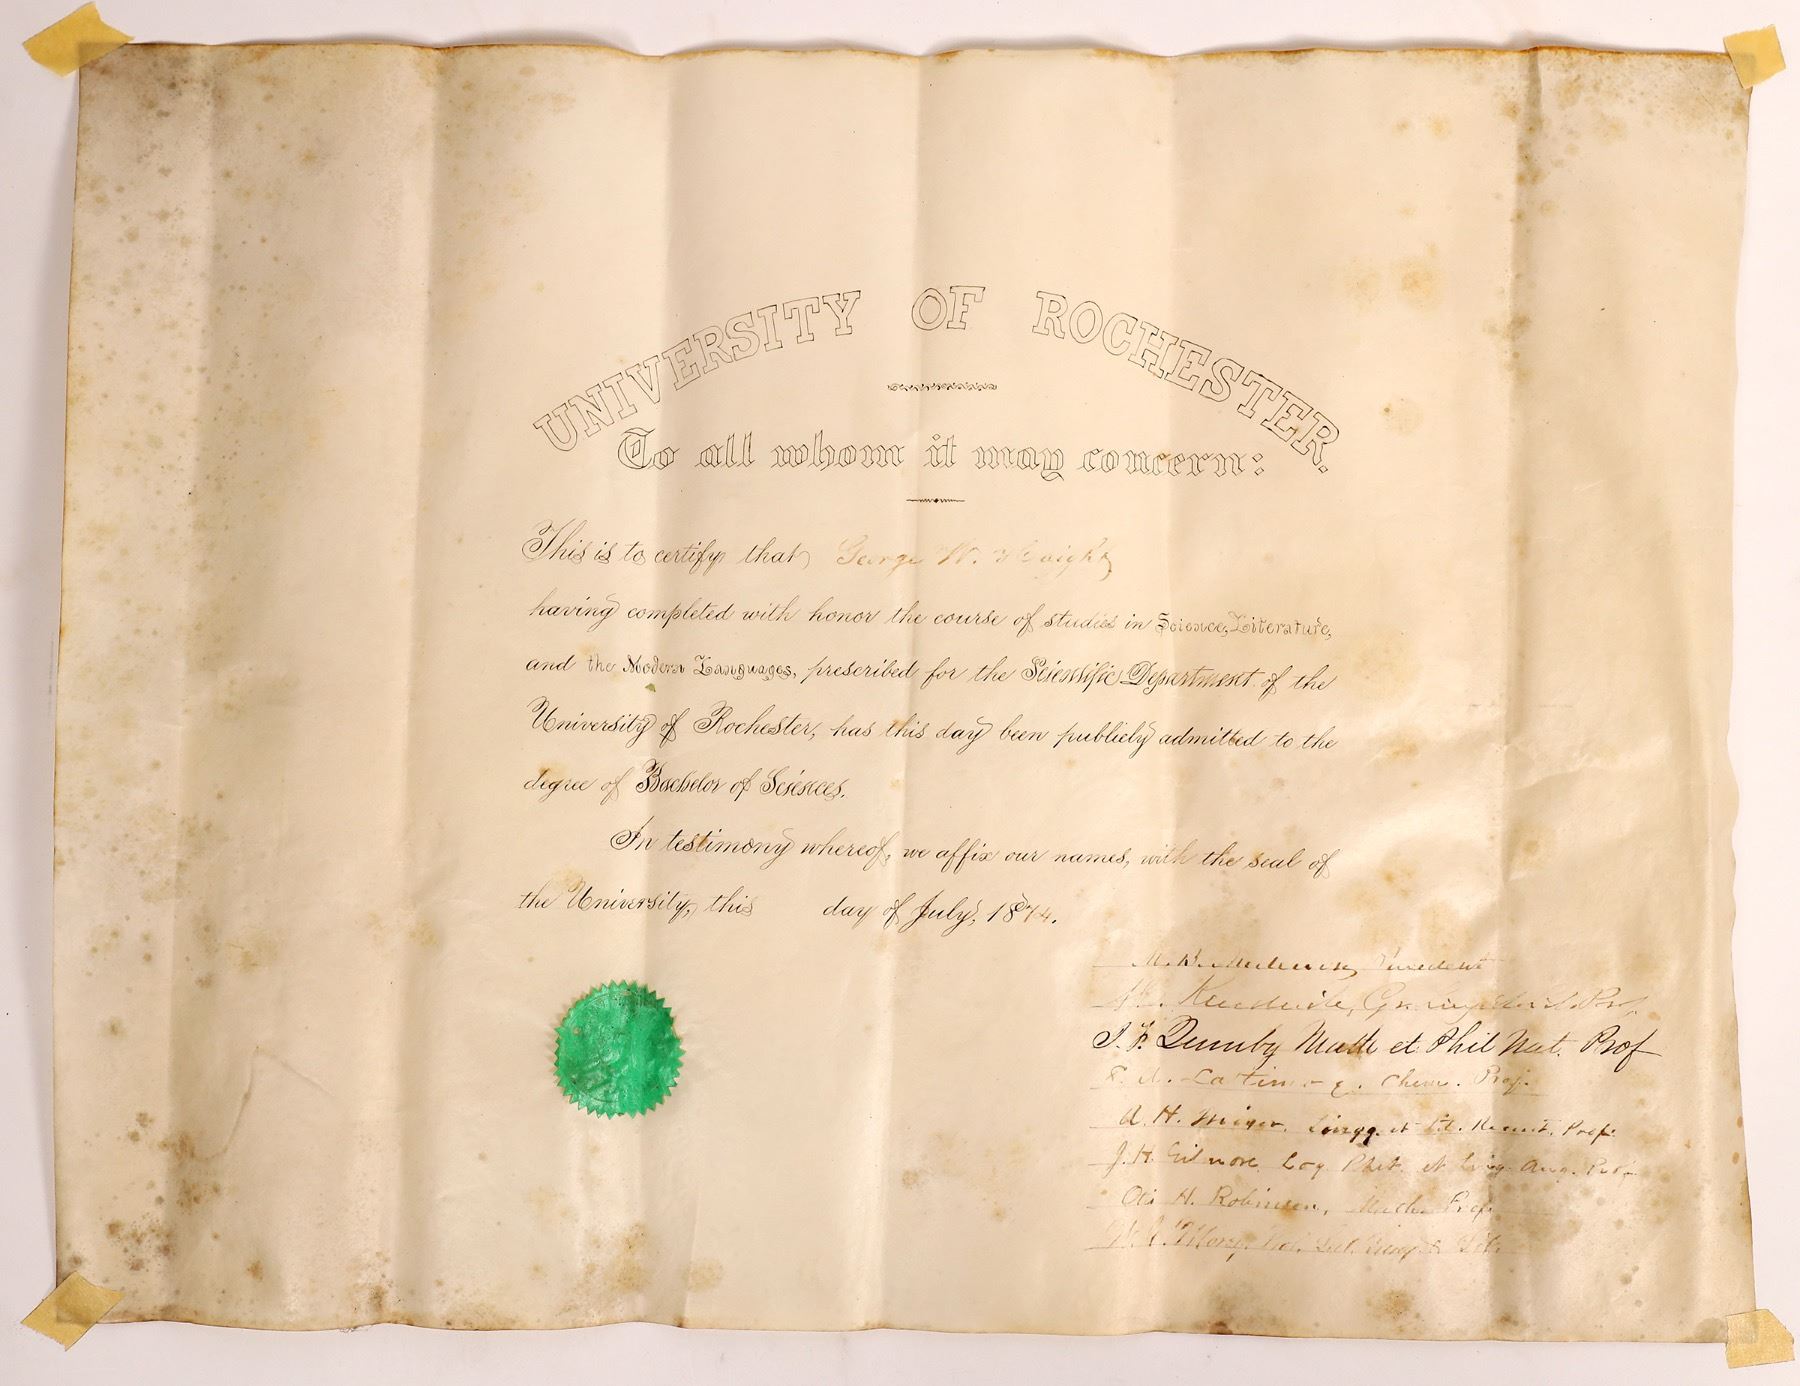 UNIVERSITY OF ROCHESTER.
To all whom it may concern:
This is to certify that George W. Haight
having completed with honor the course of studies in Science, Literature,
and the Modern Languages, prescribed for the Scientific Department of the
University of Rochester, has this day been publicly admitted to the
degree of Bachelor of Sciences.
In testimony whereof, we affix our names, with the seal of
the University, this day of July, 1874.
M. B. President
Prof.
Math et Phil Nat. Prof
S. A. Lattimore, Chem. Prof.
A. H. Mixer, Lingg. et Lit. Recent. Prof.
J. H. Gilmore, Log. Rhet. et Ling. Ang. Prof.
Otis H. Robinson, Math. Prof.